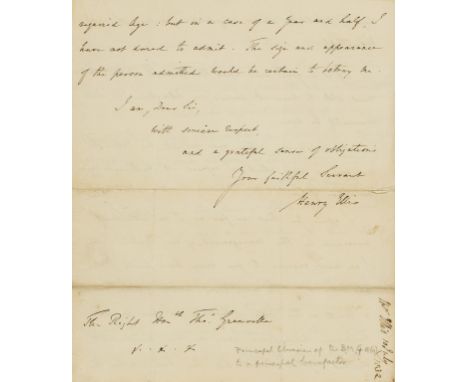 required Age: but in a case of a Year and half, I
have not dared to admit. The size and appearance
of the person admitted would be certain to betray me.
I am, Dear Sir,
with sincere respect,
and a grateful sense of obligations
Your faithful Servant
Henry Ellis
The Right Honble Thos. Grenville
x . x . x
Principal Librarian of the Brit.
to a principal benefactor
1832